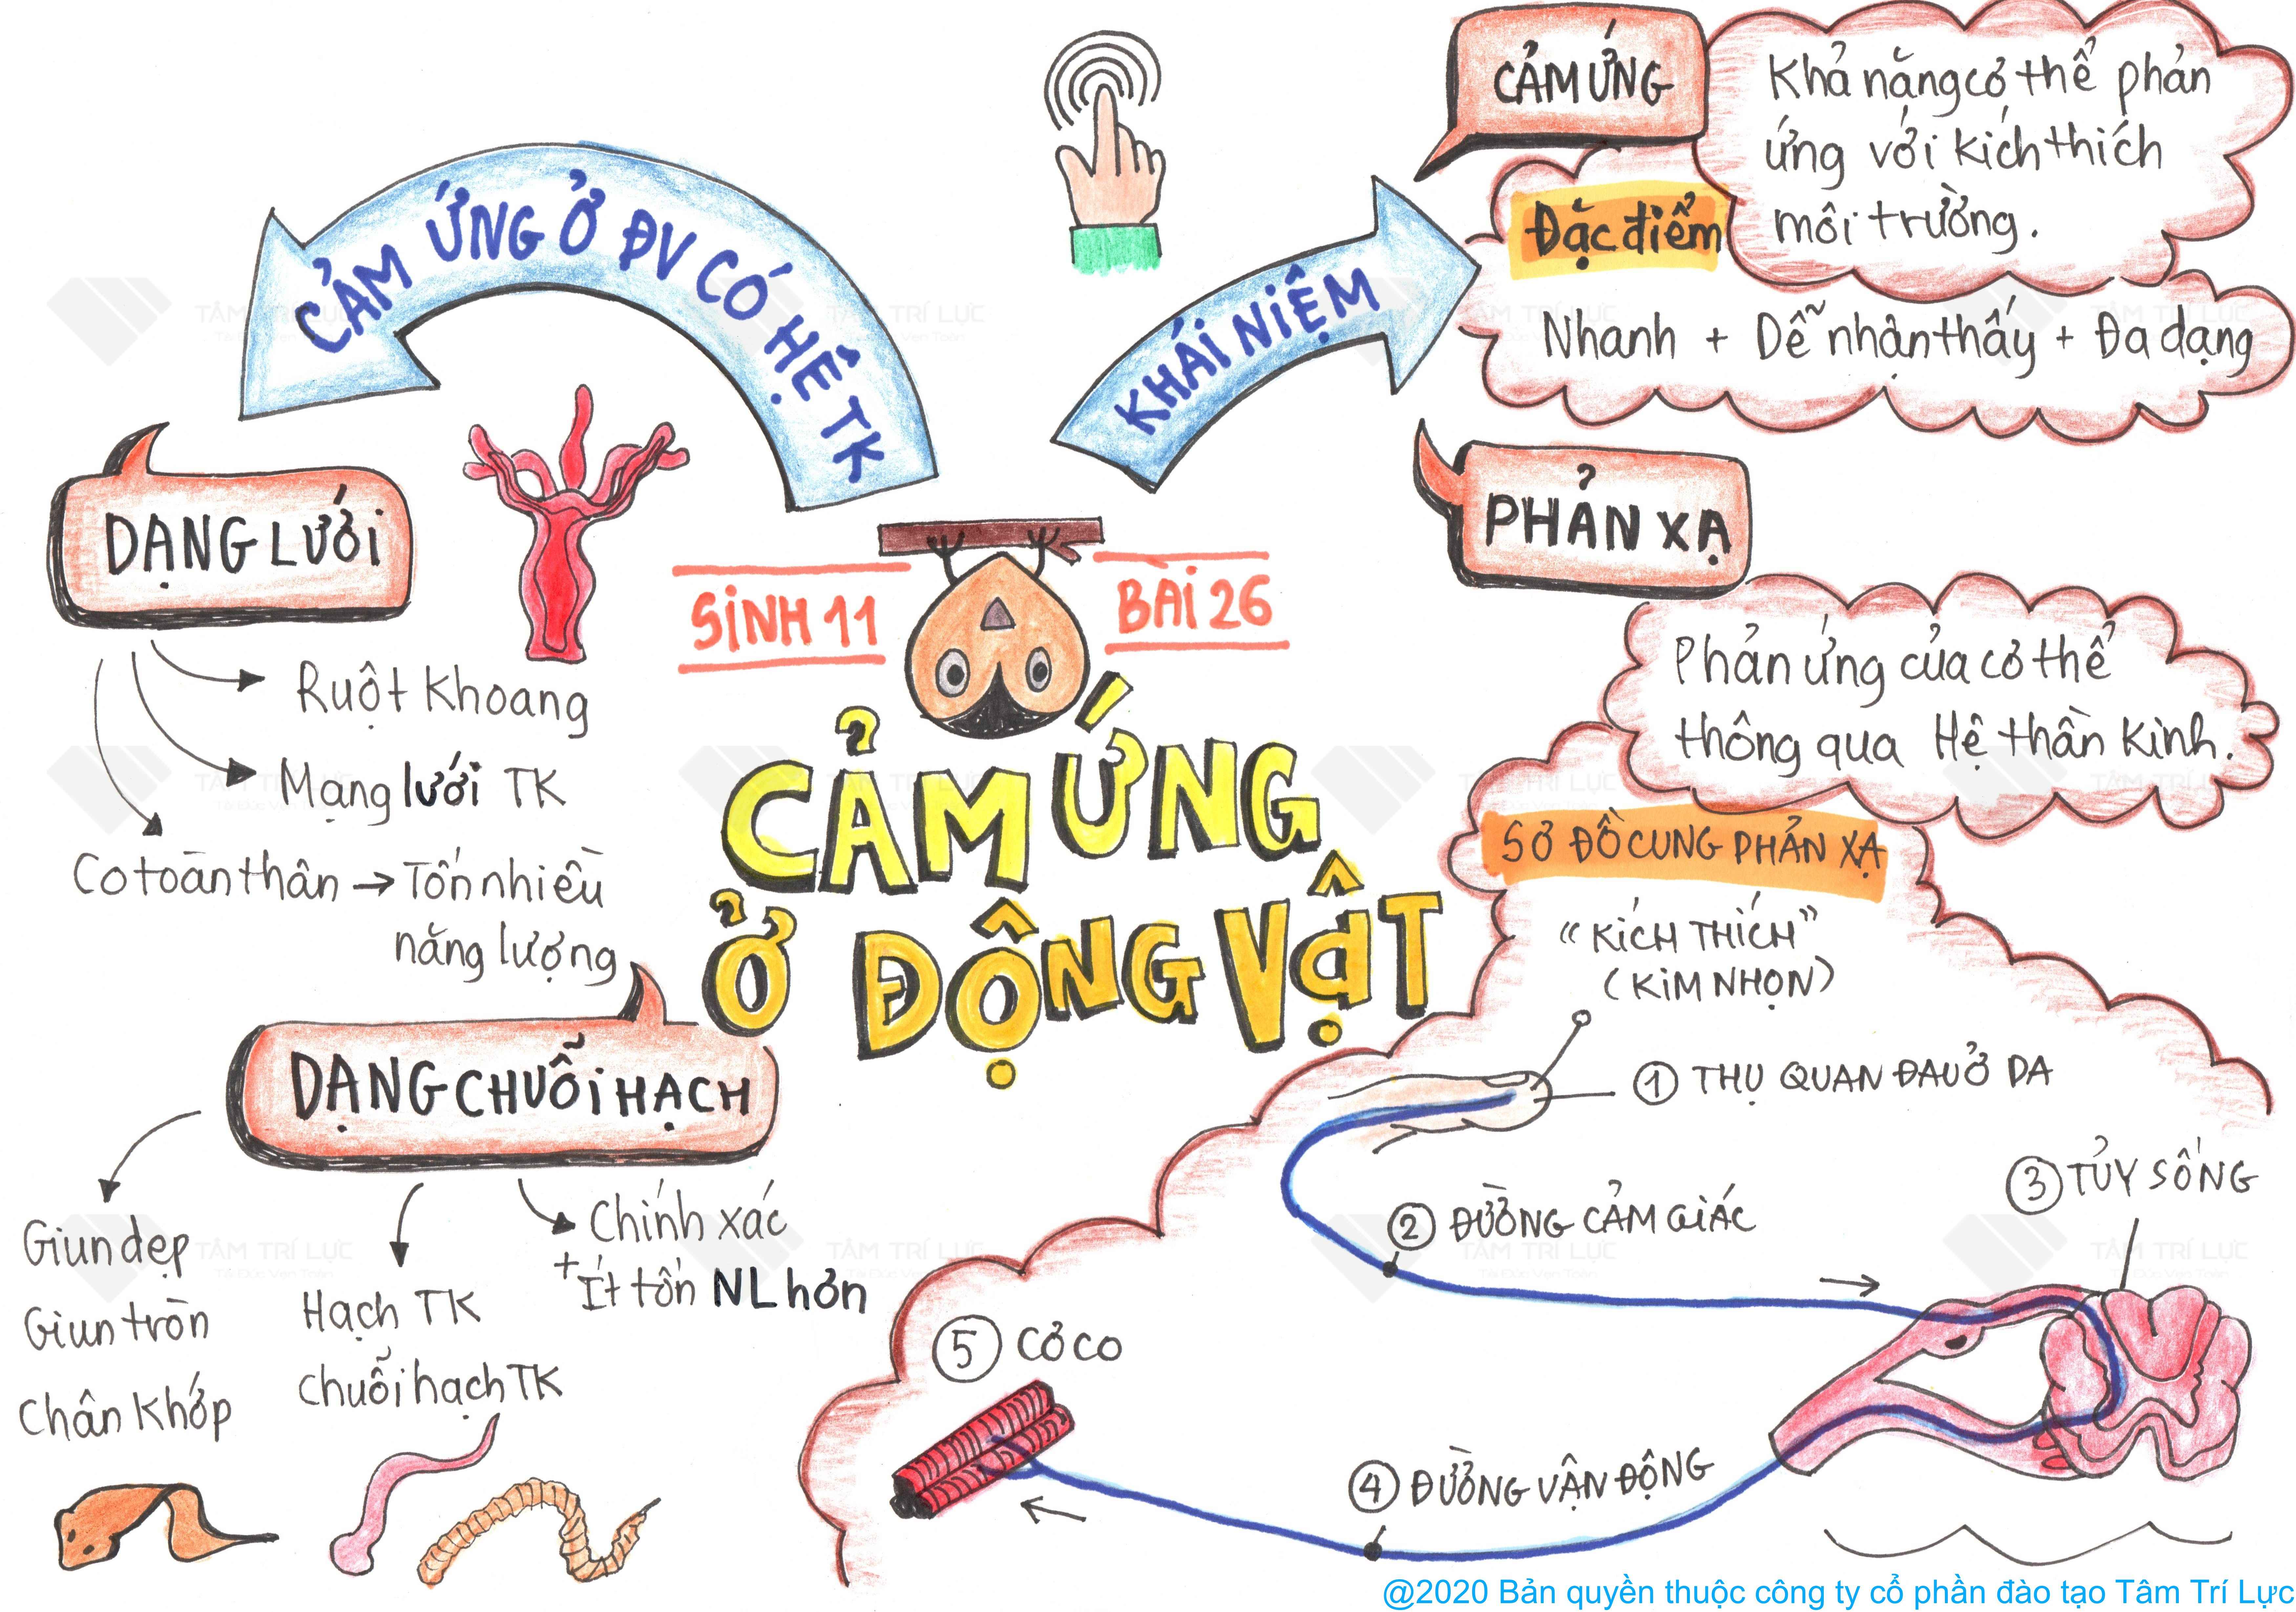 CẢM ỨNG
Khả năng cơ thể phản
ứng với kích thích
môi trường.
Đặc điểm
Nhanh + Dễ nhận thấy + Đa dạng
KHÁI NIỆM
CẢM ỨNG Ở ĐV CÓ HỆ TK
PHẢN XẠ
Phản ứng của cơ thể
thông qua Hệ thần kinh.
SƠ ĐỒ CUNG PHẢN XẠ
"KÍCH THÍCH"
(KIM NHỌN)
1 THỤ QUAN ĐAU Ở DA
2 ĐƯỜNG CẢM GIÁC
3 TỦY SỐNG
4 ĐƯỜNG VẬN ĐỘNG
5 CƠ CO
SINH 11
BÀI 26
CẢM ỨNG
Ở ĐỘNG VẬT
DẠNG LƯỚI
Ruột Khoang
Mạng lưới TK
Co toàn thân → Tốn nhiều
năng lượng
DẠNG CHUỖI HẠCH
Giun dẹp
Giun tròn
Chân Khớp
Hạch TK
chuỗi hạch TK
Chính xác
+ Ít tốn NL hơn
TÂM TRÍ LỰC
TÂM TRÍ LỰC
TÂM TRÍ LỰC
TÂM TRÍ LỰC
TÂM TRÍ LỰC
TÂM TRÍ LỰC
TÂM TRÍ LỰC
@2020 Bản quyền thuộc công ty cổ phần đào tạo Tâm Trí Lực